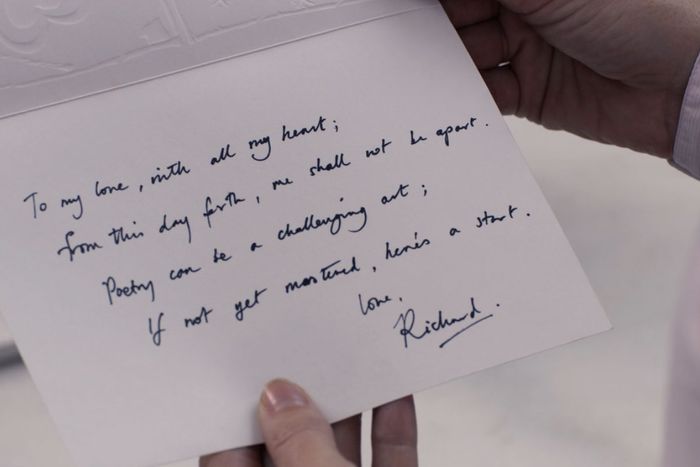 To my love, with all my heart;
from this day forth, we shall not be apart.
Poetry can be a challenging art;
If not yet mastered, here's a start.
love,
Richard.